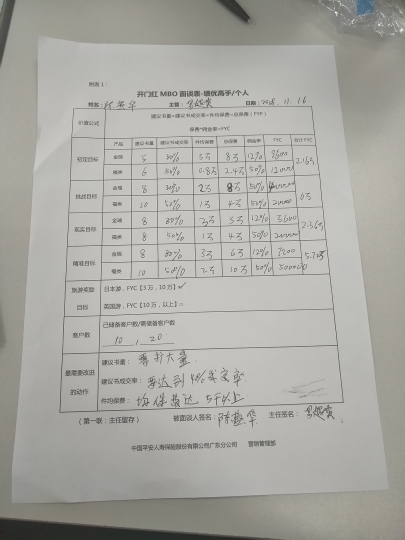 附表1：
开门红 MBO 面谈表-绩优高手/个人
姓名： 主管： 日期：2018.11.16
价值公式 建议书量×建议书成交率×件均保费=总保费（FYP）
保费*佣金率=FYC
产品 建议书量 建议书成交率 件均保费 总保费 佣金率 FYC 合计FYC
初定目标 金瑞 5 30% 5万 8万 12% 9600 2.16万
福类 6 50% 0.8万 2.4万 50% 12000
挑战目标 金瑞 8 30% 2万 8万
福类 10 50% 1万 4万 50% 20000
现实目标 金瑞 8 30% 3万 3万 12% 3600 2.36万
福类 8 50% 1万 4万 50% 20000
精准目标 金瑞 8 30% 3万 6万 12% 7200 5.72万
福类 10 50% 2万 10万 50% 50000
旅游奖励目标 日本游，FYC【3万，10万】✓
英国游，FYC【10万，以上】□
客户数 已储备客户数/需储备客户数
10 , 20
最需要改进的动作 建议书量： 需扩大量
建议书成交率： 要达到40%成交率
件均保费： 均保费达5千以上
（第一联：主任留存） 被面谈人签名： 主任签名：
中国平安人寿保险股份有限公司广东分公司 营销管理部